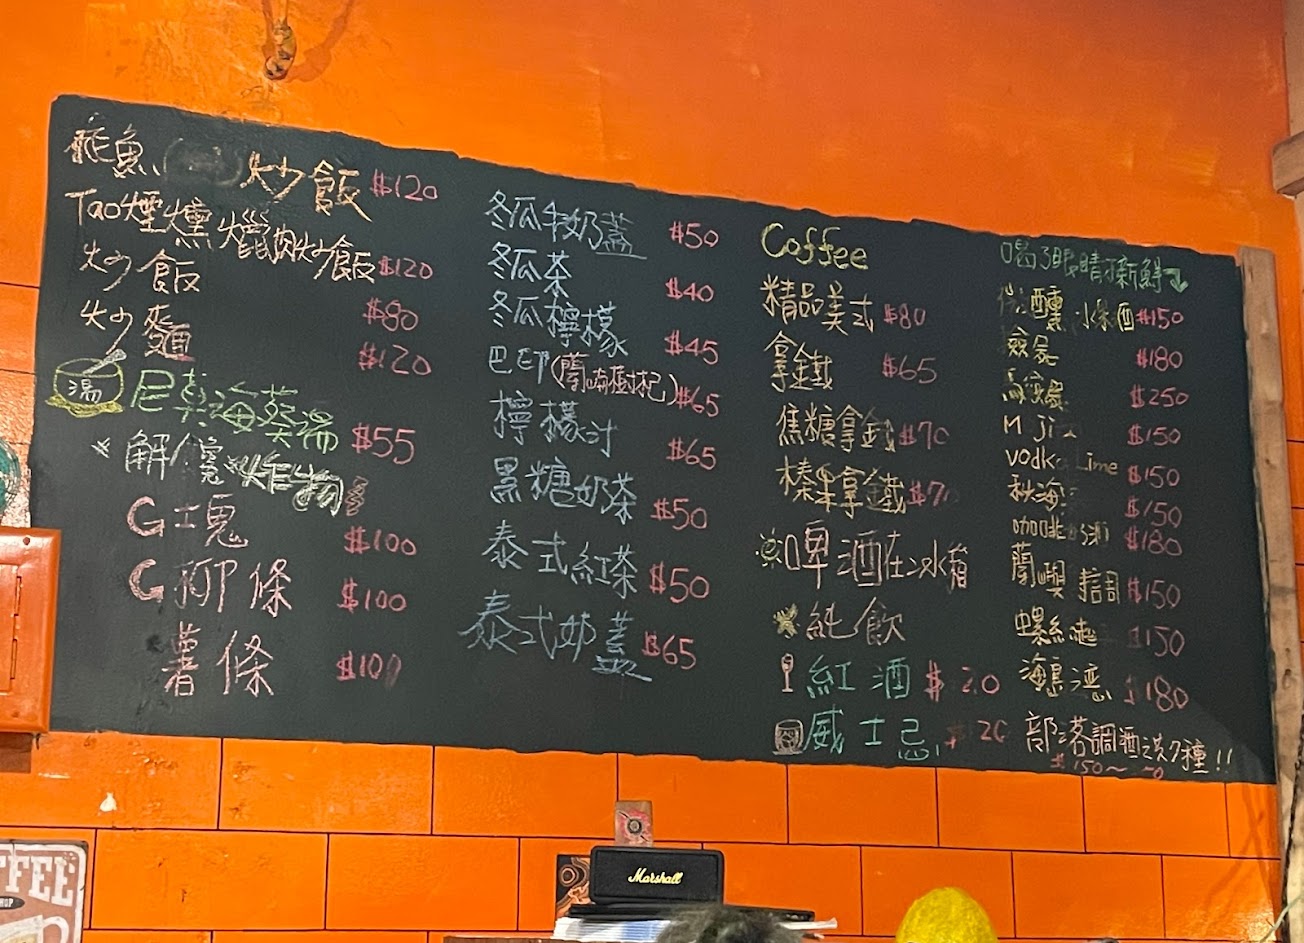 飛魚 炒飯 $120
Tao煙燻爁肉炒飯 $120
炒飯 $80
炒麵 $120
湯 海菜湯 $55
解饞 炸物
G土塊 $100
G柳條 $100
薯條 $100
冬瓜牛奶蓋 $50
冬瓜茶 $40
冬瓜檸檬 $45
巴印(蘭嶼樹杞) $65
檸檬汁 $65
黑糖奶茶 $50
泰式紅茶 $50
泰式奶蓋 $65
Coffee
精品美式 $80
拿鐵 $65
焦糖拿鐵 $70
榛果拿鐵 $7
啤酒在冰箱
純飲
紅酒 $
威士忌
喝了眼睛 新鮮
微醺 酒 $150
$180
$250
M $150
Vodka Lime $150
秋海 $150
咖啡 $180
蘭嶼 $150
螺絲 $150
海 $180
部落調酒 種!!
$150~
Marshall
FFEE